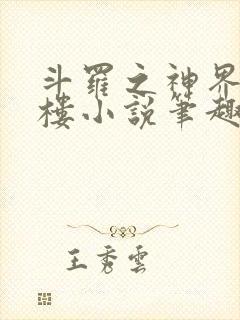 斗羅之神界
樓小說筆趣
王秀雲